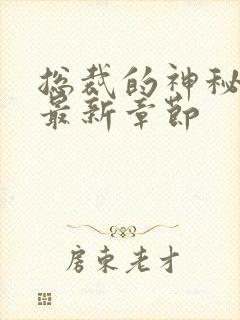 总裁的神秘
最新章节
房东老才